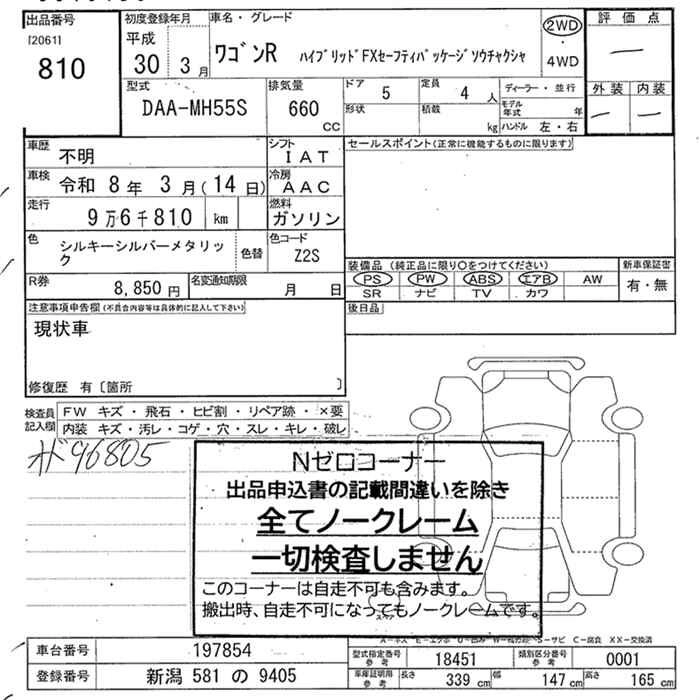 出品番号
[2061]
810
初度登録年月
平成
30 3月
車名・グレード
ワゴンR ハイブリッドFXセーフティパッケージソウチャクシャ
2WD
・
4WD
評価点
外装 内装
型式
DAA-MH55S
排気量
660
CC
ドア
5
定員
4 人
形状
積載
kg
ディーラー・並行
モデル年式 年
ハンドル 左・右
車歴
不明
シフト
IAT
車検
令和 8年 3月(14日)
冷房
AAC
走行
9万6千810 km
燃料
ガソリン
色
シルキーシルバーメタリック
色替
色コード
Z2S
R券
8,850円
名変通知期限
月 日
セールスポイント(正常に機能するものに限ります)
装備品 (純正品に限り〇をつけてください)
PS PW ABS エアB AW
SR ナビ TV カワ
新車保証書
有・無
後日品
注意事項申告欄(不具合内容等は具体的に記入して下さい)
現状車
修復歴 有〔箇所 〕
検査員記入欄
FW キズ・飛石・ヒビ割・リペア跡・×要
内装 キズ・汚レ・コゲ・穴・スレ・キレ・破レ
オド96805
Nゼロコーナー
出品申込書の記載間違いを除き
全てノークレーム
一切検査しません
このコーナーは自走不可も含みます。
搬出時、自走不可になってもノークレームです。
車台番号
197854
登録番号
新潟 581 の 9405
型式指定番号
参考
18451
類別区分番号
参考
0001
車庫証明用
参考
長さ
339 cm
幅
147 cm
高さ
165 cm